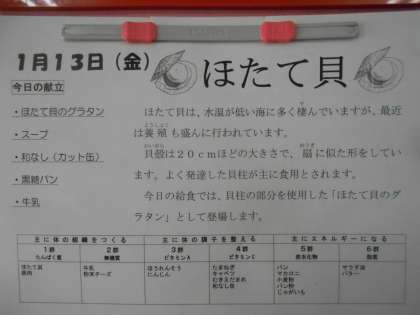 1月13日（金）
ほたて貝
今日の献立
・ほたて貝のグラタン
・スープ
・和なし（カット缶）
・黒糖パン
・牛乳
ほたて貝は、水温が低い海に多く棲んでいますが、最近
は養殖も盛んに行われています。
貝殻は２０ｃｍほどの大きさで、扇に似た形をしてい
ます。よく発達した貝柱が主に食用とされます。
今日の給食では、貝柱の部分を使用した「ほたて貝のグ
ラタン」として登場します。
主に体の組織をつくる 主に体の調子を整える 主にエネルギーになる
1群 2群 3群 4群 5群 6群
たんぱく質 無機質 ビタミンA ビタミンC 炭水化物 脂質
ほたて貝 牛乳 ほうれんそう たまねぎ パン サラダ油
鶏肉 粉末チーズ にんじん キャベツ マカロニ バター
むきえだまめ 小麦粉
和なし缶 パン粉
じゃがいも